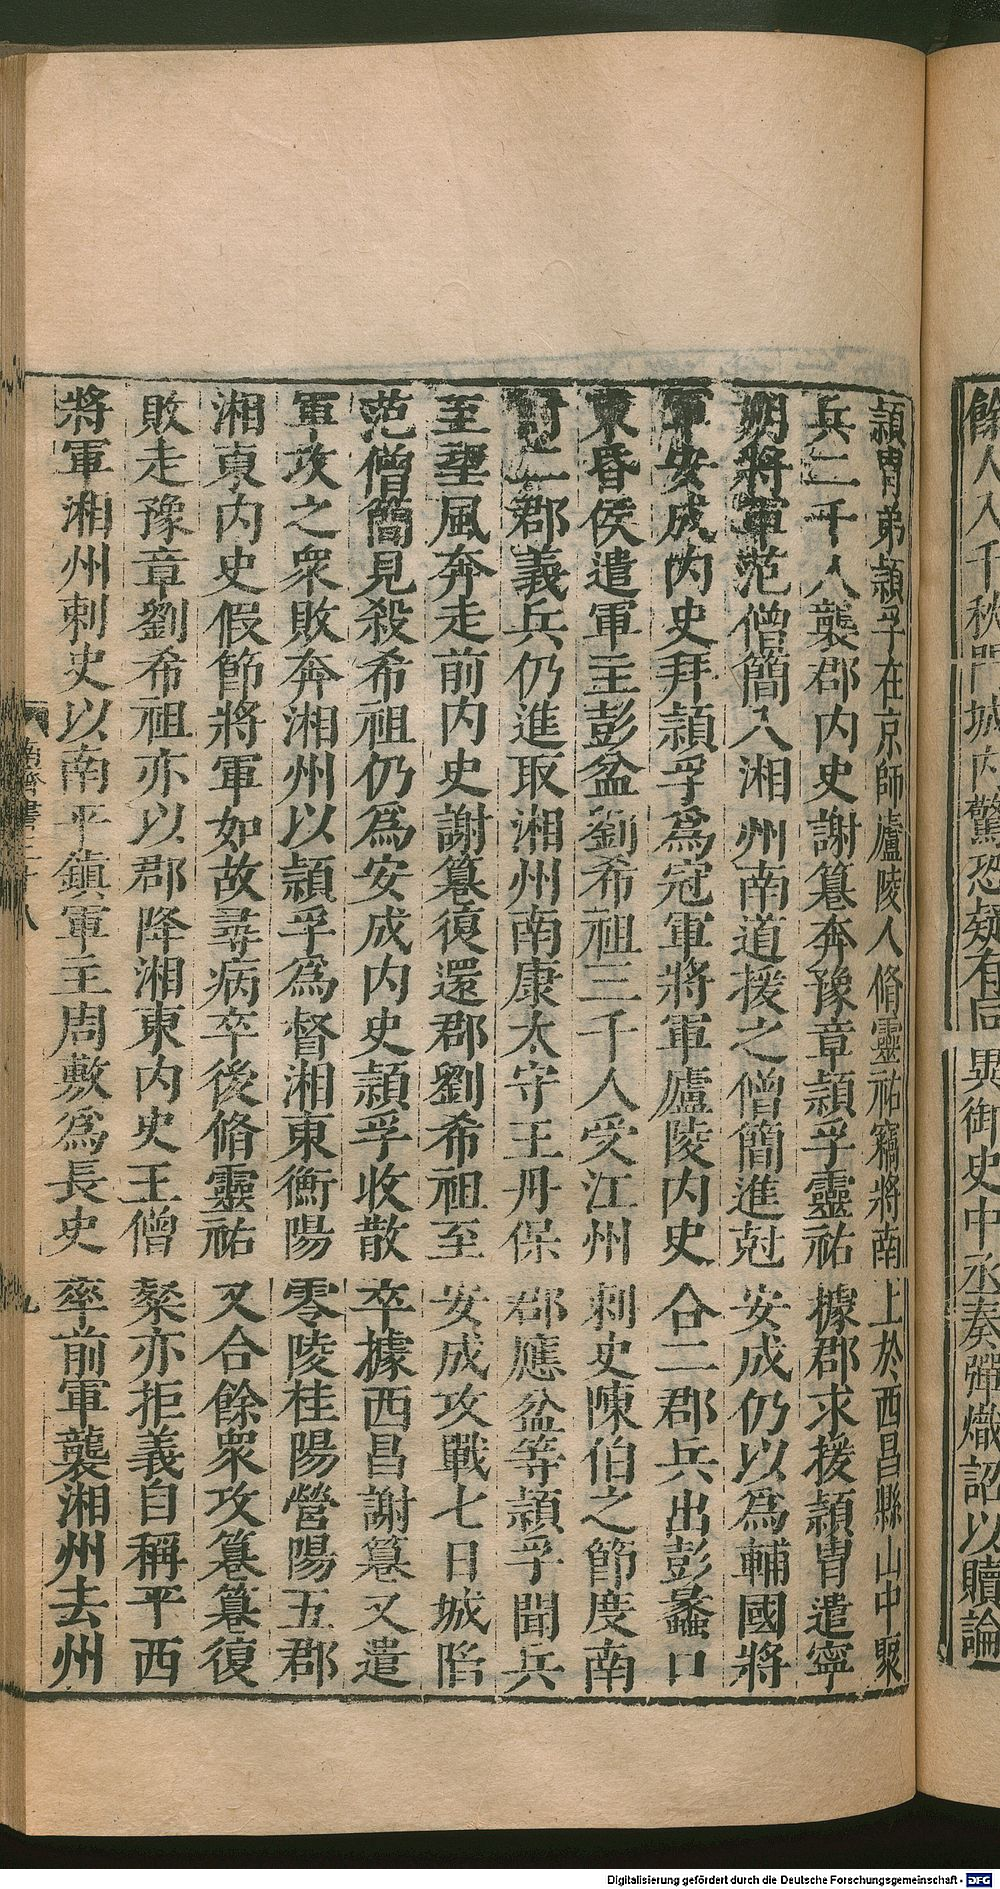 餘人入千秋門城內驚恐疑有同異御史中丞奏彈熾詔以贖論
穎胄弟穎孚在京師廬陵人脩靈祐竊將南上於西昌縣山中聚
兵二千人襲郡內史謝篹奔豫章穎孚靈祐據郡求援穎胄遣寧
朔將軍范僧簡入湘州南道援之僧簡進尅安成仍以爲輔國將
軍安成內史拜穎孚爲冠軍將軍廬陵內史合二郡兵出彭蠡口
東昏侯遣軍主彭盆劉希祖三千人受江州刺史陳伯之節度南
討二郡義兵仍進取湘州南康太守王丹保郡應盆等穎孚聞兵
至望風奔走前內史謝篹復還郡劉希祖至安成攻戰七日城陷
范僧簡見殺希祖仍爲安成內史穎孚收散卒據西昌謝篹又遣
軍攻之衆敗奔湘州以穎孚爲督湘東衡陽零陵桂陽營陽五郡
湘東內史假節將軍如故尋病卒後脩靈祐又合餘衆攻篹篹復
敗走豫章劉希祖亦以郡降湘東內史王僧粲亦拒義自稱平西
將軍湘州刺史以南平鎮軍主周敷爲長史率前軍襲湘州去州
南齊書三十八
九
Digitalisierung gefördert durch die Deutsche Forschungsgemeinschaft - DFG